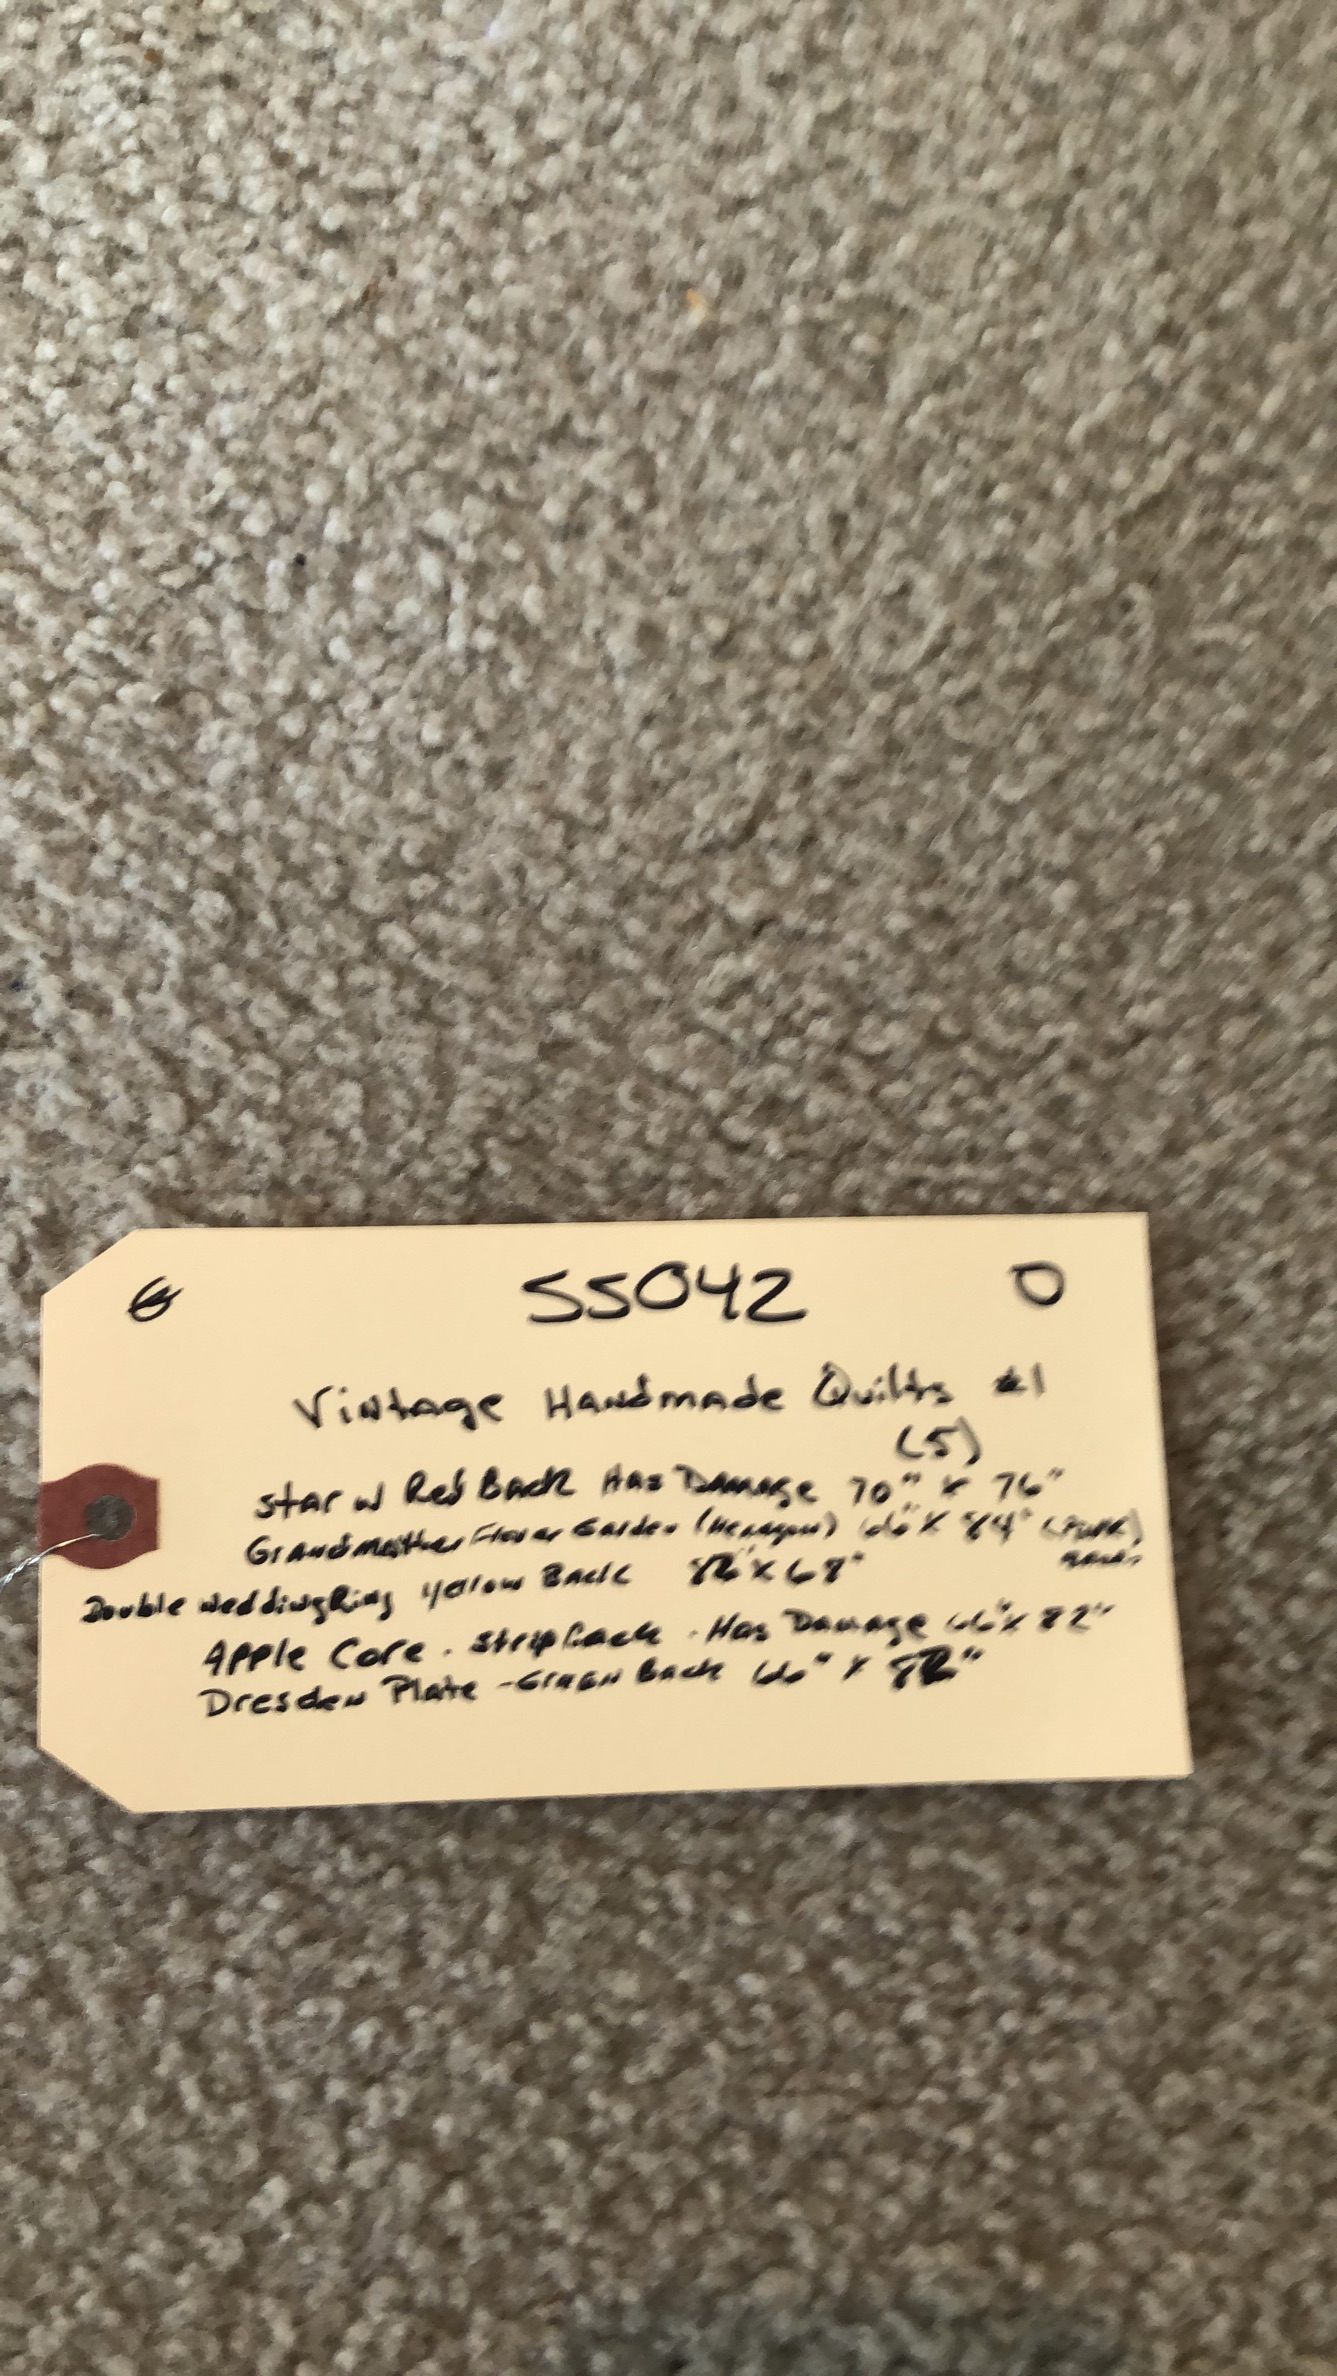 G SS042 O
Vintage Handmade Quilts #1
(5)
Star w Red Back Has Damage 70" x 76"
Grandmother Flower Garden (Hexagon) 66" x 84" (Pink)
Back
Double Wedding Ring Yellow Back x 68"
Apple Core . Strip Back . Has Damage 66" x 82"
Dresden Plate - Green Back 66" x